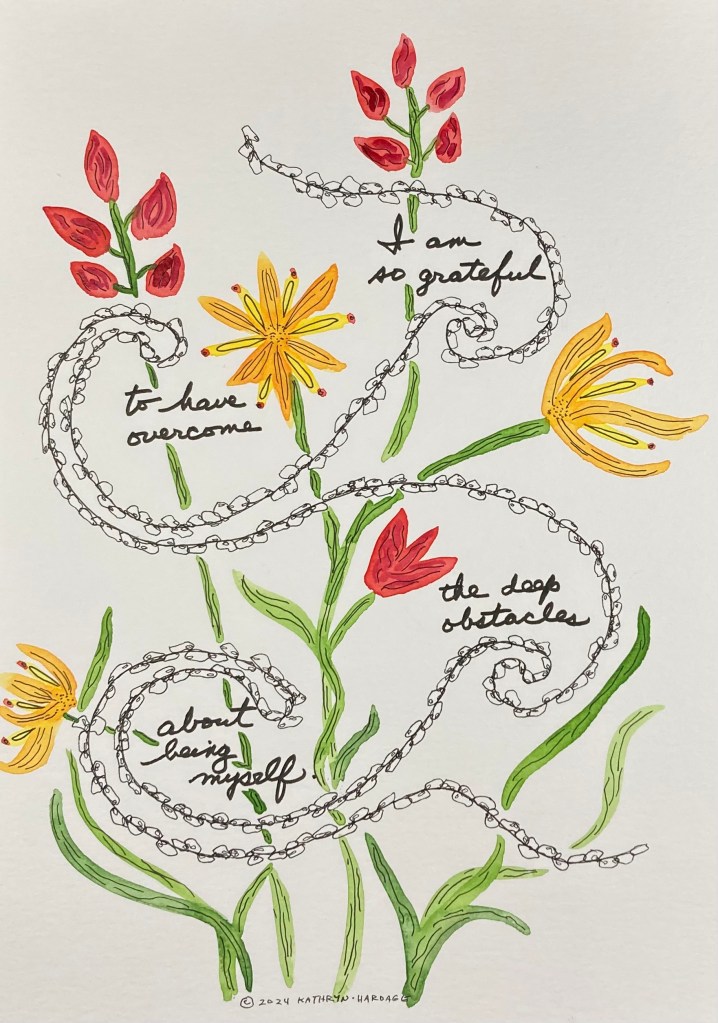 I am
so grateful
to have
overcome
the deep
obstacles
about
being
myself.
© 2024 KATHRYN · HARDAGE